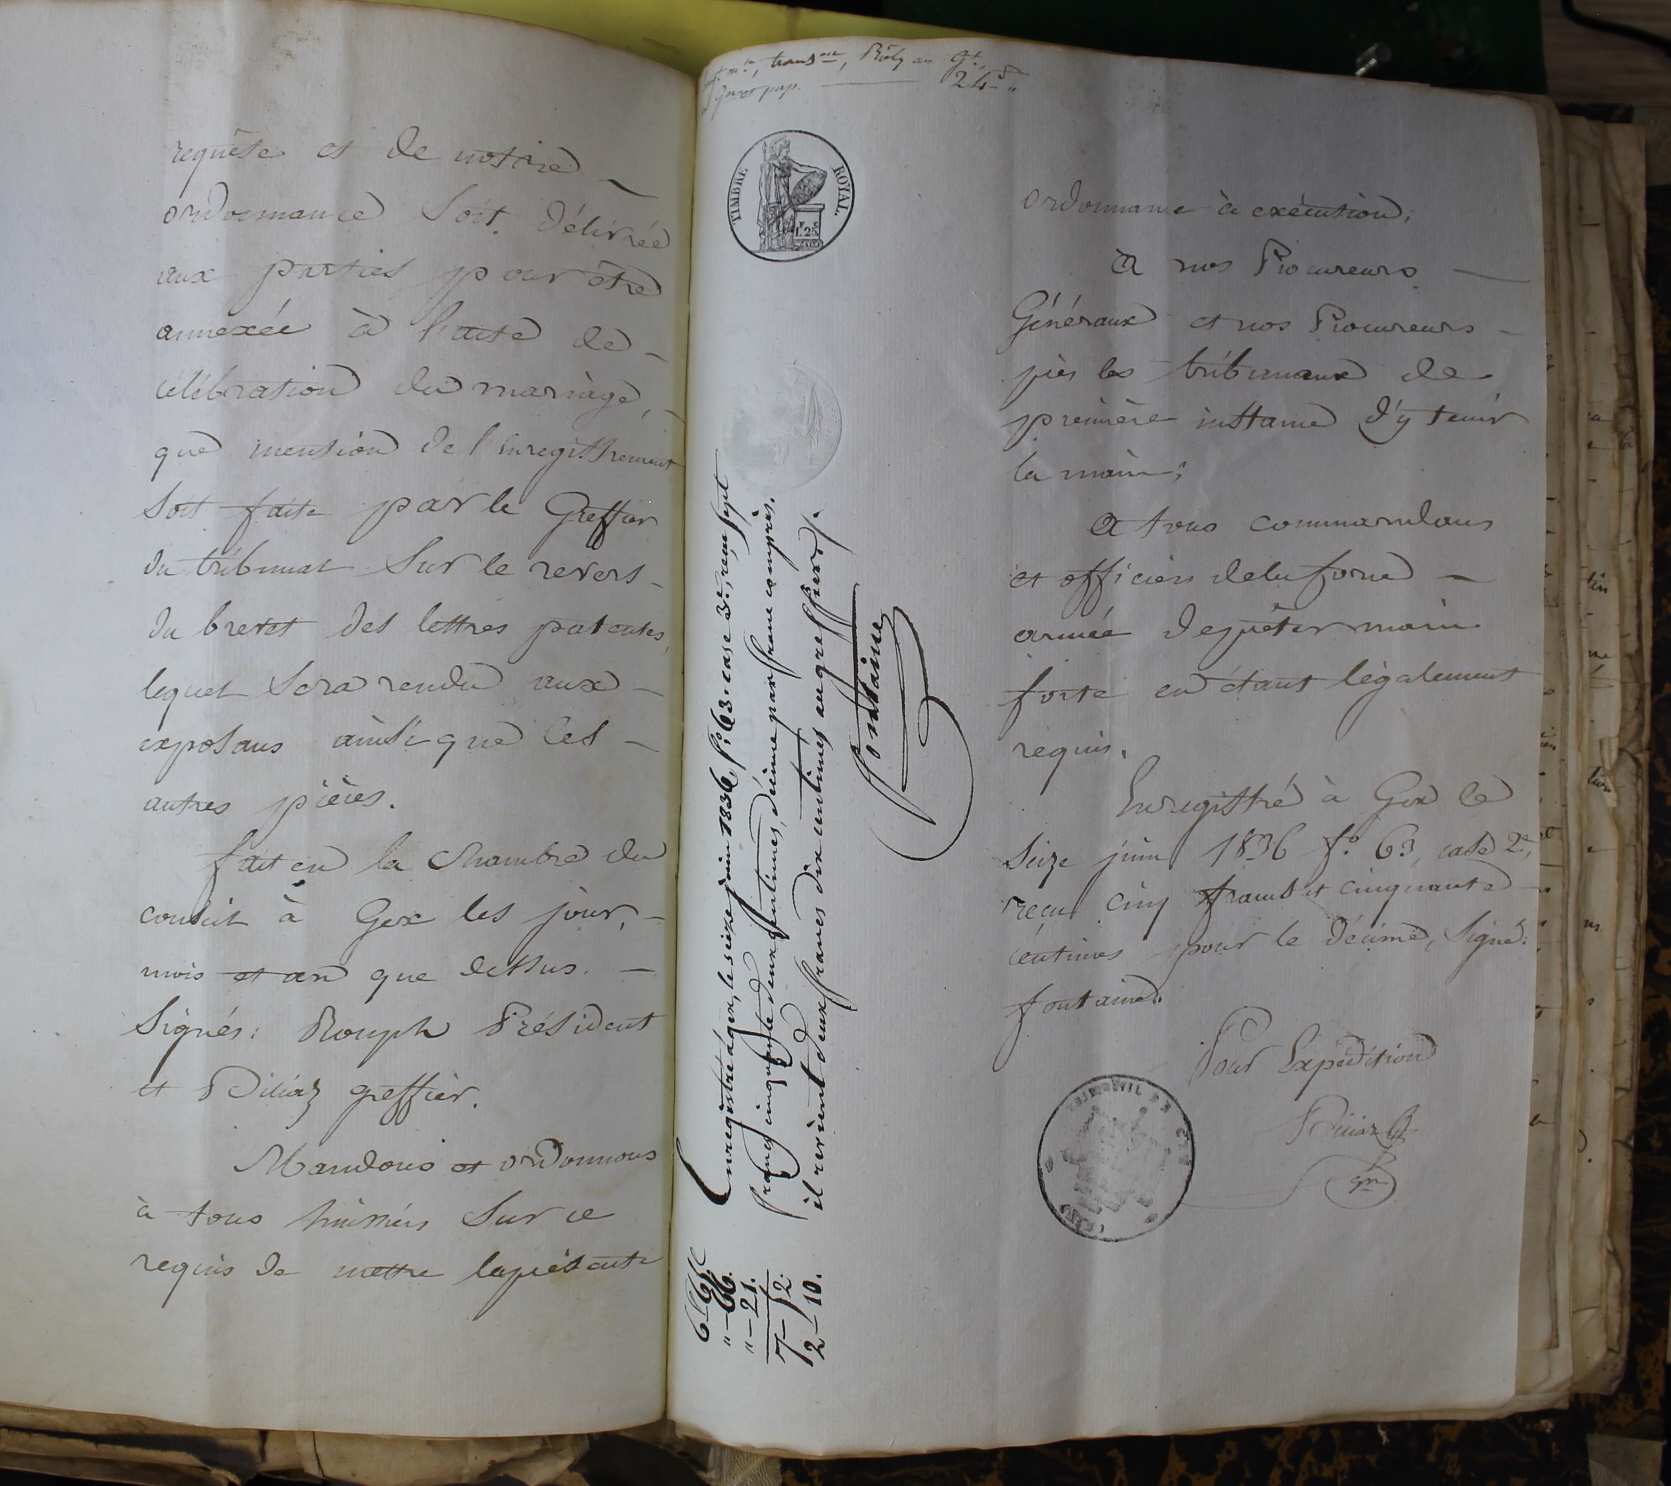 requête et de notre
ordonnance soit délivrée
aux parties pour être
annexée à l'acte de
célébration du mariage,
que mention de l'enregistrement
soit faite par le Greffier
du tribunal sur le revers
du brevet des lettres patentes,
lequel sera rendu aux
exposans ainsi que les
autres pièces.
fait en la chambre du
conseil à Gex les jour,
mois et an que dessus.
Signés: Rouph Président
et greffier.
Mandons et ordonnons
à tous huissiers sur ce
requis de mettre la présente
24
TIMBRE ROYAL.
1f. 25c
Enregistré à gex, le seize juin 1836, f.º 63. case 3.e, reçu sept
francs cinquante deux centimes, décime par franc compris.
il revient deux francs dix centimes au greffier.
fontaine
"-66.
"-21.
7-52.
2-10.
ordonnance à exécution;
A nos Procureurs
Généraux et nos Procureurs
près les tribunaux de
première instance d'y tenir
la main;
A tous commandans
et officiers de la force
armée de prêter main
forte en étant légalement
requis.
Enregistré à Gex le
seize juin 1836 f.º 63, case 2.e,
reçu cinq francs et cinquante
centimes pour le décime, Signé:
fontaine.
Pour Expédition